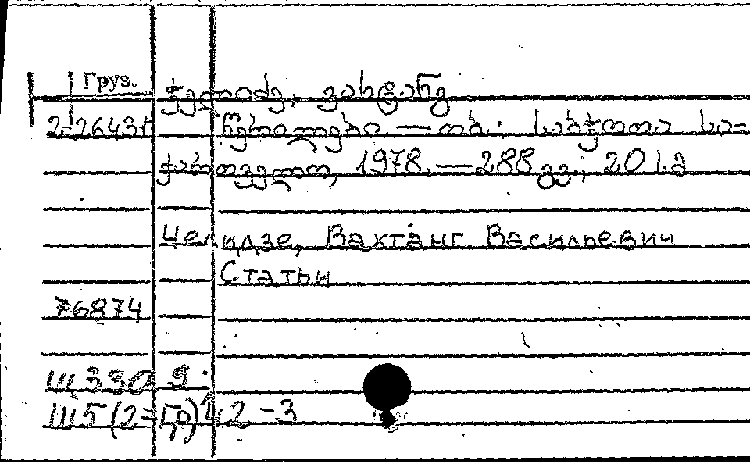 Груз.
ჭელიძე, ვახტანგ
2-26431 წერილები — თბ.: საბჭოთა სა-
ქართველო, 1978. — 288 გვ.; 20 ს.მ
Челидзе, Вахтанг Васильевич
Статьи
76874
Ш330 9.
Ш5(2=Гр)42-3